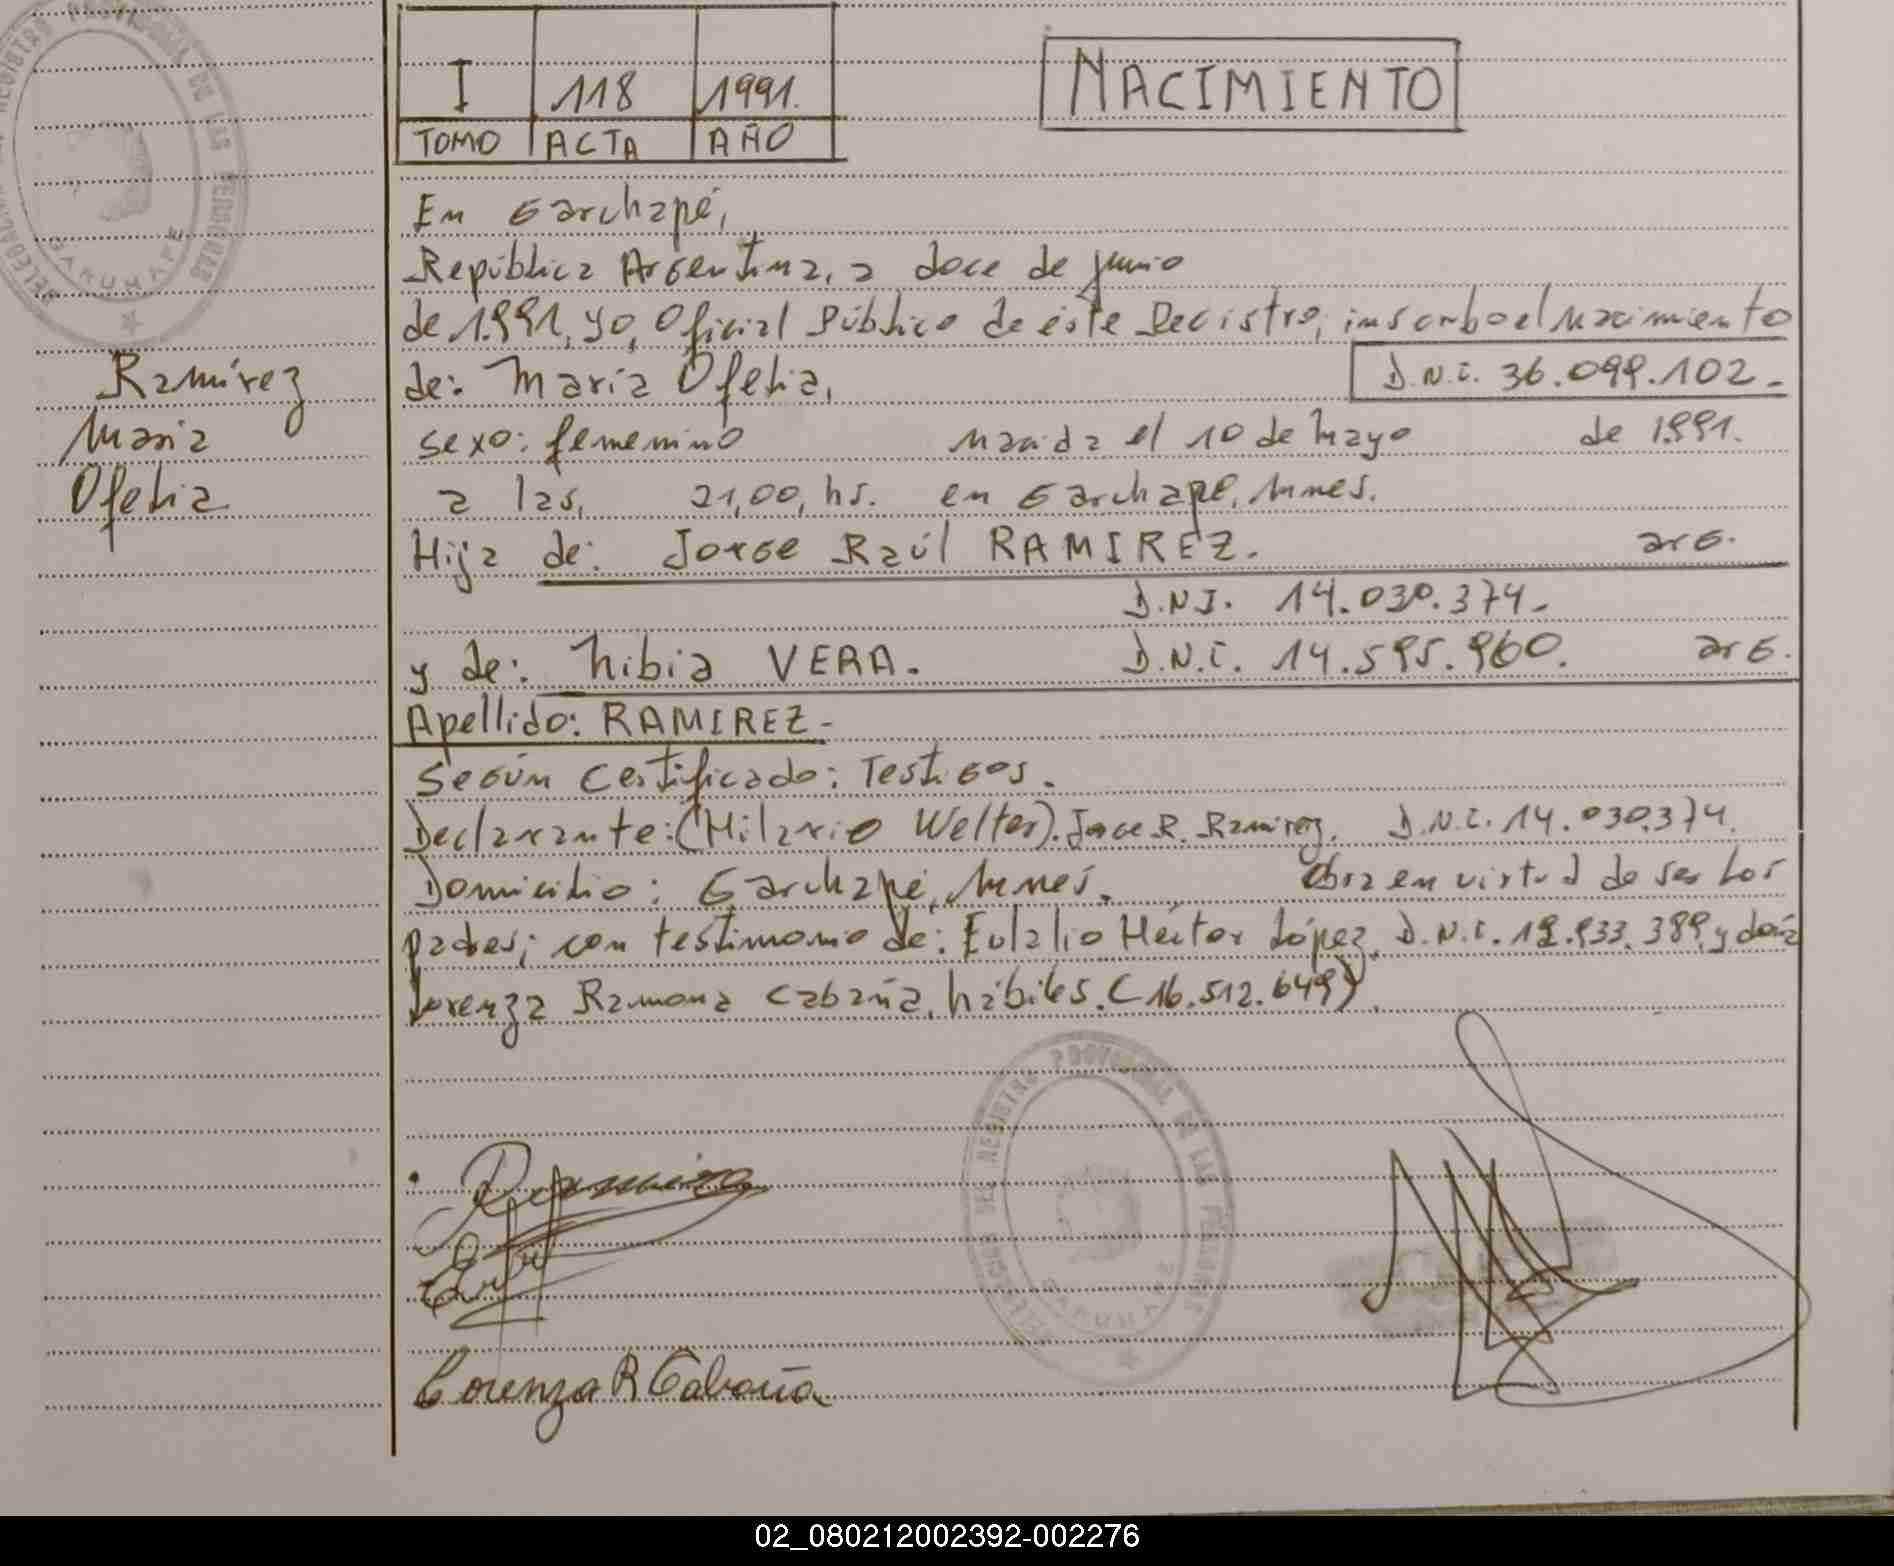 I 118 1991.
TOMO ACTA AÑO
NACIMIENTO
DEL REGISTRO PROVINCIAL DE LAS PERSONAS
GARUHAPE
Ramírez
María
Ofelia
En Garuhapé,
República Argentina, a doce de junio
de 1.991, yo, Oficial Público de éste Registro, inscribo el nacimiento
de: María Ofelia, D.N.I. 36.099.102.-
sexo: femenino nacida el 10 de mayo de 1.991.
a las, 21,00, hs. en Garuhapé, Mnes.
Hija de: Jorge Raúl RAMIREZ. arg.
D.N.I. 14.030.374.-
y de: Nibia VERA. D.N.I. 14.595.960. arg.
Apellido: RAMIREZ.-
Según Certificado: Testigos.
Declarante: (Hilario Welter). Jorge R. Ramirez. D.N.I. 14.030.374.
Domicilio: Garuhapé, Mnes. Obra en virtud de ser los
padres; con testimonio de: Eulalio Héctor López, D.N.I. 12.933.389, y doña
Lorenza Ramona Cabaña, hábiles. (16.512.649)
DEL REGISTRO PROVINCIAL DE LAS PERSONAS
GARUHAPE
Ramirez
Lorenza R Cabaña
02_080212002392-002276